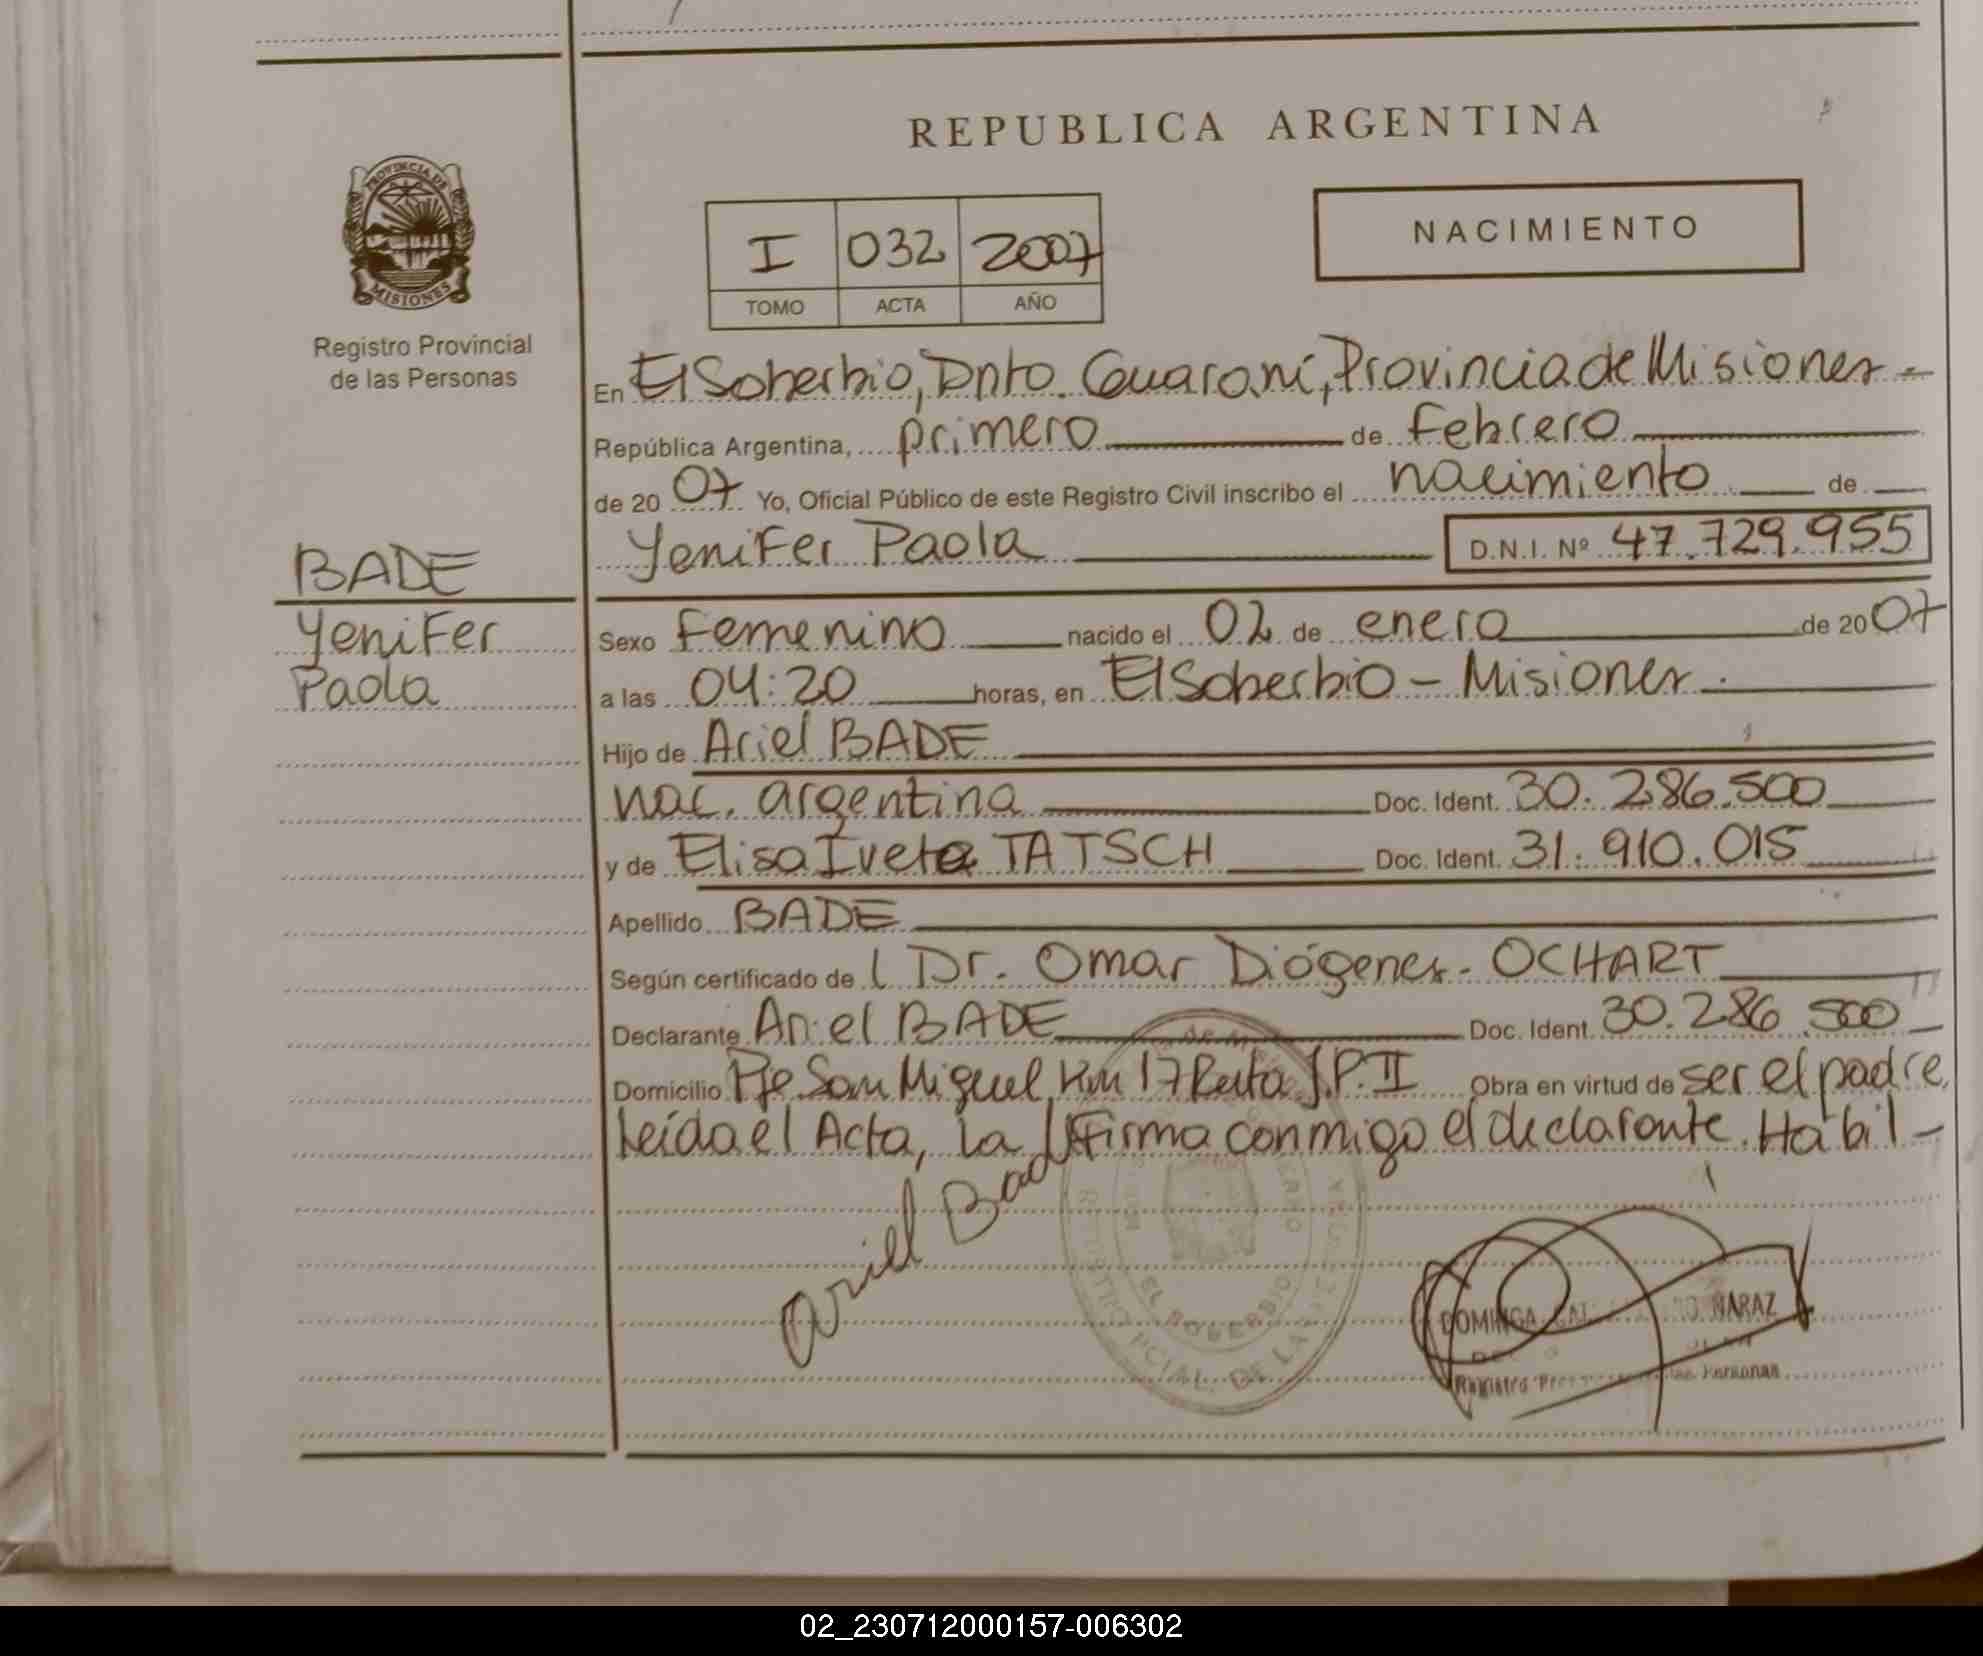 REPUBLICA ARGENTINA
PROVINCIA DE
MISIONES
Registro Provincial
de las Personas
I 032 2007
TOMO ACTA AÑO
NACIMIENTO
En El Soberbio, Dpto. Guaraní, Provincia de Misiones -
República Argentina, primero de Febrero
de 2007 Yo, Oficial Público de este Registro Civil inscribo el nacimiento de
Yenifer Paola D.N.I. Nº 47.729.955
BADE
Yenifer
Paola
Sexo Femenino nacido el 02 de enero de 2007
a las 04:20 horas, en El Soberbio - Misiones.
Hijo de Ariel BADE
nac. argentina Doc. Ident. 30.286.500
y de Elisa Ivete TATSCH Doc. Ident. 31.910.015
Apellido BADE
Según certificado de l Dr. Omar Diógenes - OCHART
Declarante Ariel BADE Doc. Ident. 30.286.500
Domicilio Pje San Miguel Km 17 Ruta J.P. II Obra en virtud de ser el padre
Leída el Acta, la firma conmigo el declarante. Habil -
Ariel Bade
EL SOBERBIO
DE LAS
DOMINGA NARAZ
Registro Personas
02_230712000157-006302